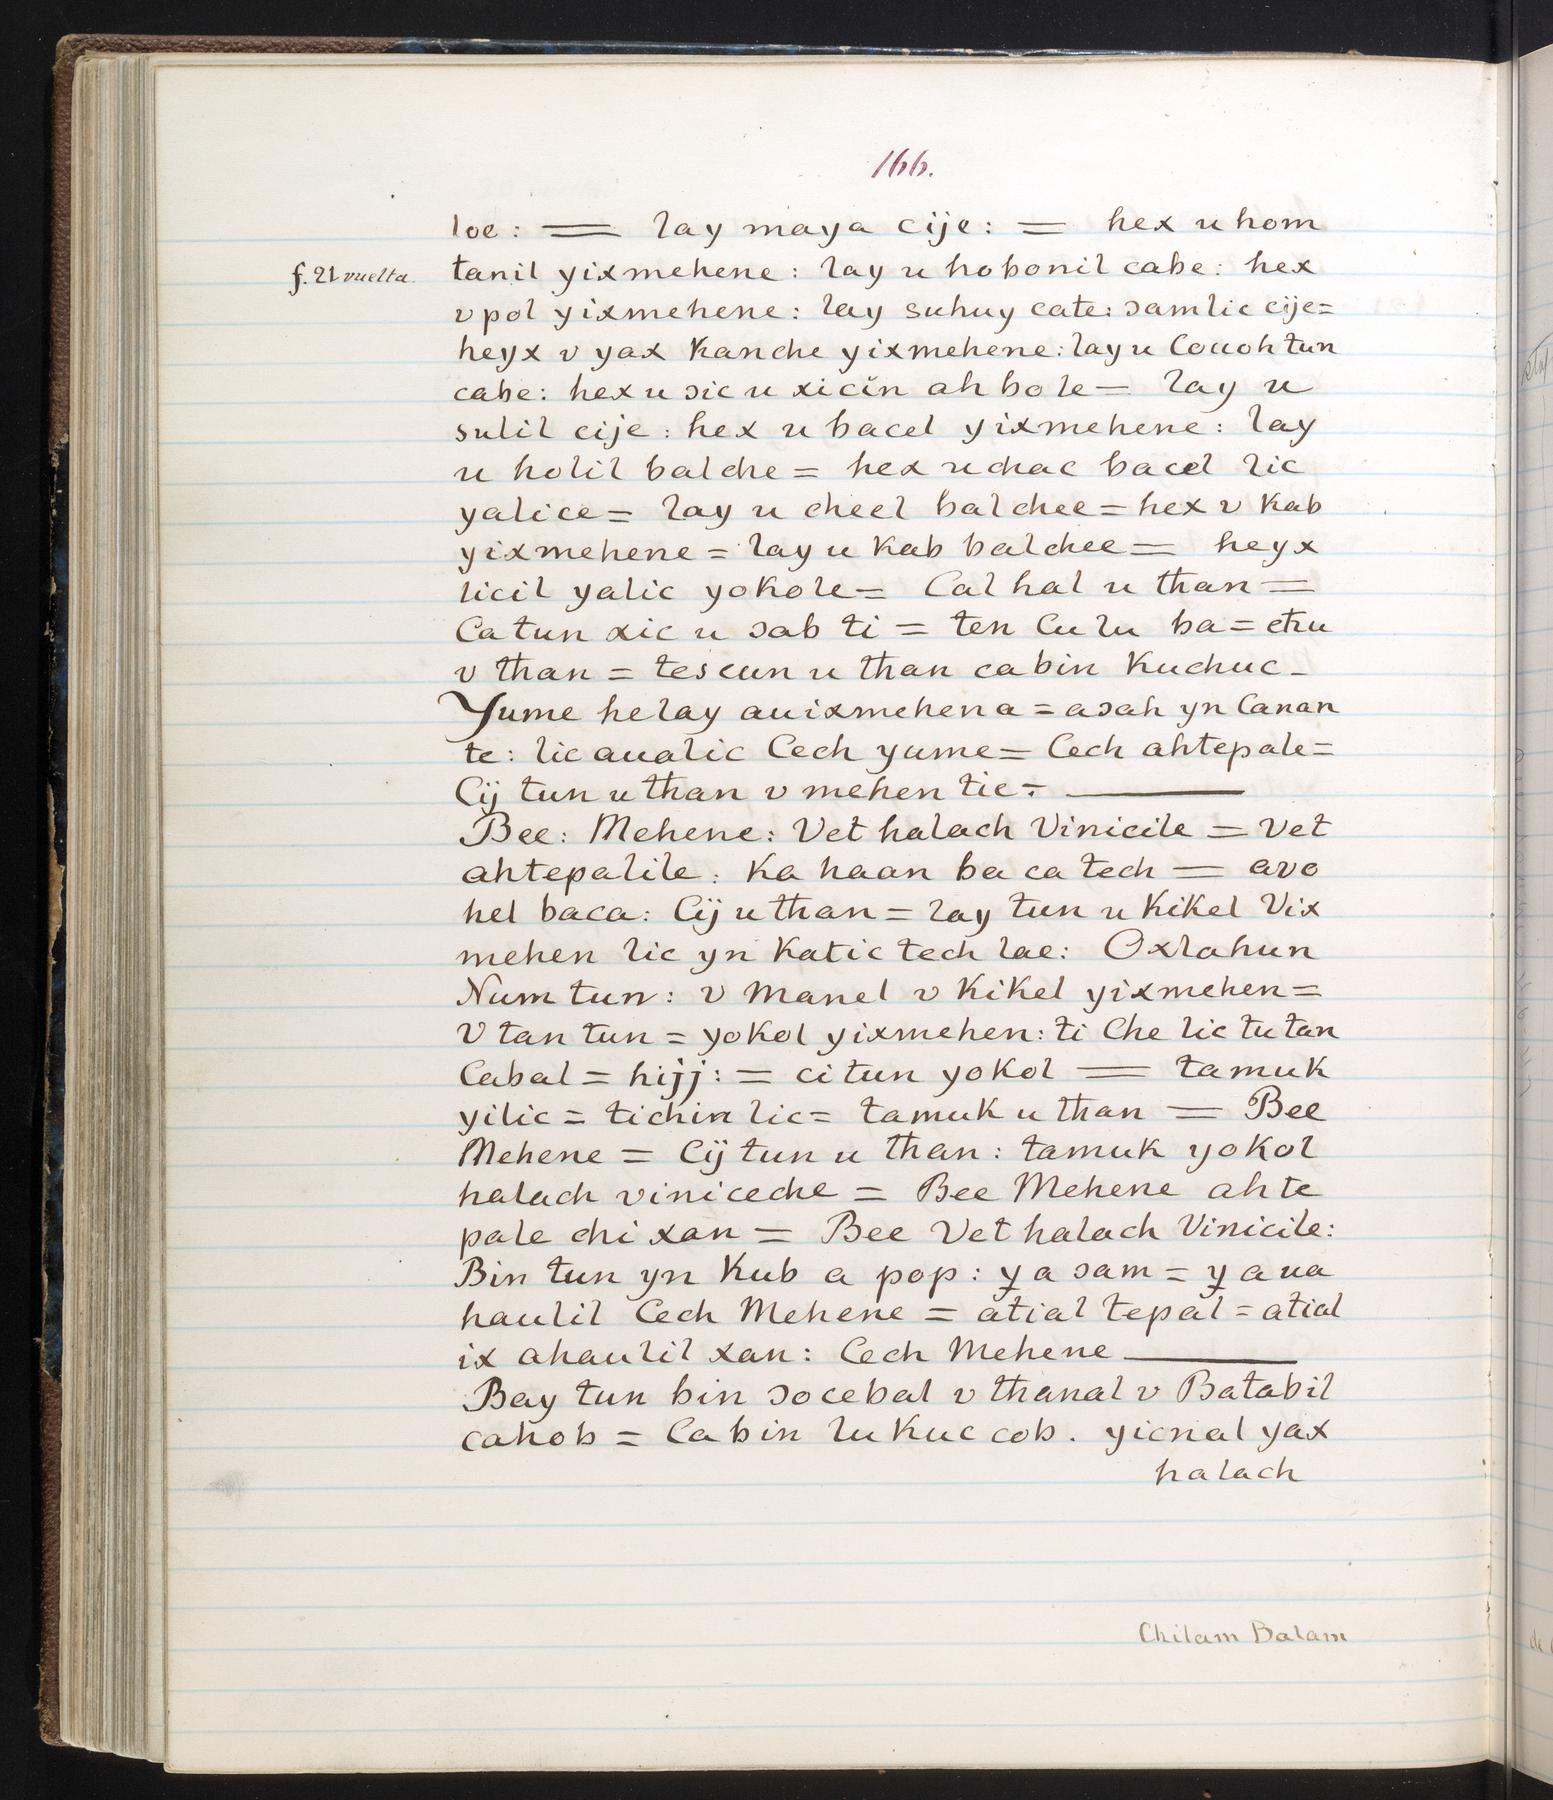 166.
loe: = lay maya cije: = hex u hom
f. 21 vuelta. tanil yixmehene: lay u hobonil cabe: hex
v pol yixmehene: lay suhuy cate: ɔamlic cije=
heyx v yax Kanche yixmehene: lay u Couoh tun
cabe: hex u ɔic u xicin ah bole= lay u
sulil cije: hex u bacel yixmehene: lay
u holil balche = hex u chac bacel lic
yalice = lay u cheel balchee = hex v Kab
yixmehene = lay u Kab balchee = heyx
licil yalic yokole= Cal hal u than =
Ca tun xic u ɔab ti = ten Cu lu ba = etħu
v than = tes cun u than ca bin Kuchuc_
Yume helay auixmehena = aɔah yn Canan
te: lic aualic Cech yume = Cech ahtepale=
Cij tun u than v mehen tie =.
Bee: Mehene: Vet halach Vinicile = Vet
ahtepalile: Ka haan ba ca tech = avo
hel baca: Cij u than = lay tun u Kikel Vix
mehen lic yn Katic tech lae: Oxlahun
Num tun: v Manel v KiKel yixmehen =
V tan tun = yoKol yixmehen: ti Che lic tu tan
Cabal = hijj: = ci tun yoKol = tamuk
yilic = tichin lic = tamuK u than = Bee
Mehene = Cij tun u than: tamuk yoKol
halach viniceche = Bee Mehene ahte
pale chi xan = Bee Vet halach Vinicile:
Bin tun yn Kub a pop: y a ɔam = y a ua
haulil Cech Mehene = atial tepal = atial
ix ahaulil xan: Cech Mehene
Bay tun bin ɔocebal v thanal v Batabil
cahob = Ca bin luKuc cob. yicnal yax
halach
Chilam Balam